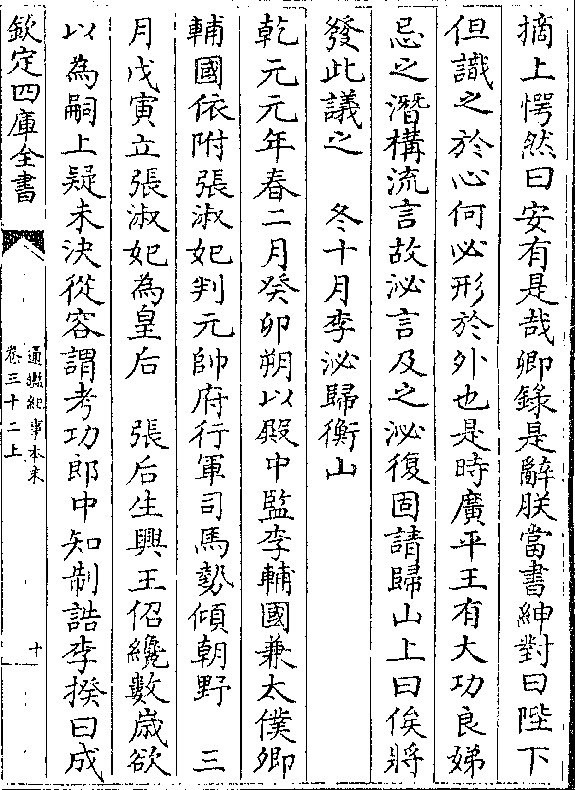 摘上愕然曰安有是哉卿錄是辭朕當書紳對曰陛下
但識之於心何必形於外也是時廣平王有大功良娣
忌之潛構流言故泌言及之泌復固請歸山上曰俟將
發此議之　冬十月李泌歸衡山
乾元元年春二月癸卯朔以殿中監李輔國兼太僕卿
輔國依附張淑妃判元帥府行軍司馬勢傾朝野　三
月戊寅立張淑妃為皇后　張后生興王佋纔數歲欲
以為嗣上疑未決從容謂考功郎中知制誥李揆曰成
欽定四庫全書
通鑑紀事本末
卷三十二上
十